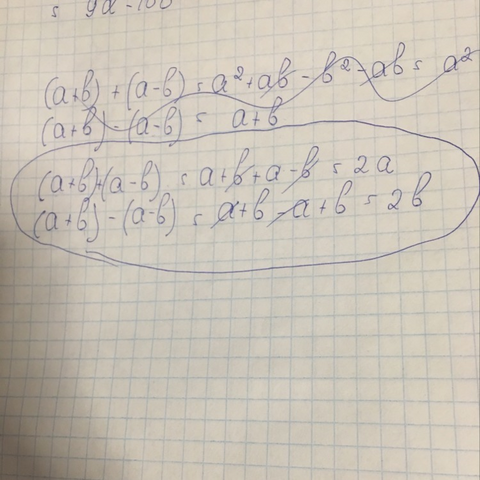 = 9a - 100
(a+b) + (a-b) = a² + ab - b² - ab = a²
(a+b) - (a-b) = a+b
(a+b)+(a-b) = a+b+a-b = 2a
(a+b) - (a-b) = a+b-a+b = 2b